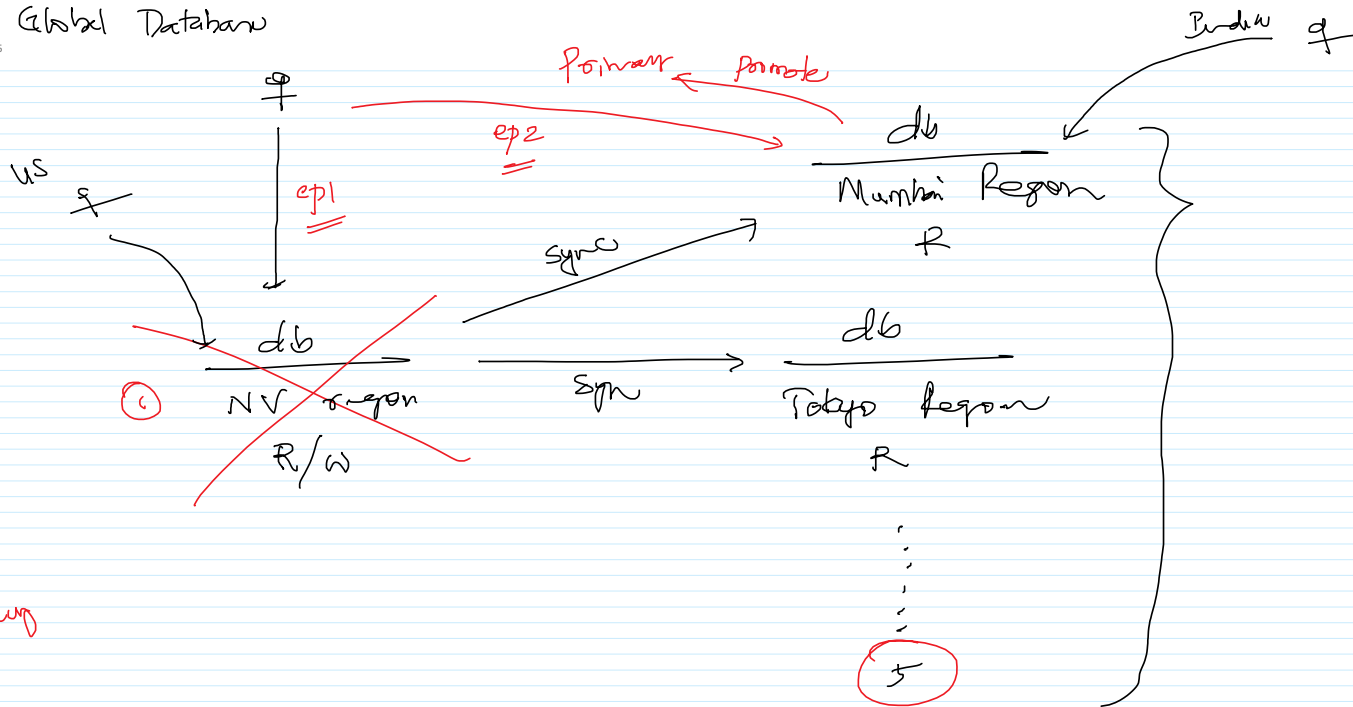 Global Database
India
Primary
Promote
ep2
db
Mumbai Region
R
US
ep1
sync
db
NV region
R/W
Syn
db
Tokyo Region
R
5
up